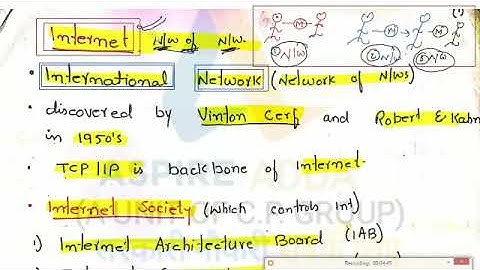 Internet N/W of N/W.
M M
① N/W ② N/W ③ N/W
• International Network (Network of N/Ws)
• discovered by Vinton Cerf and Robert E Kahn
in 1950's
• TCP/IP is backbone of Internet.
ASPIRE
• Internet Society (which controls Int)
(A UNIT OF C.P. GROUP)
1) Internet Architecture Board (IAB)